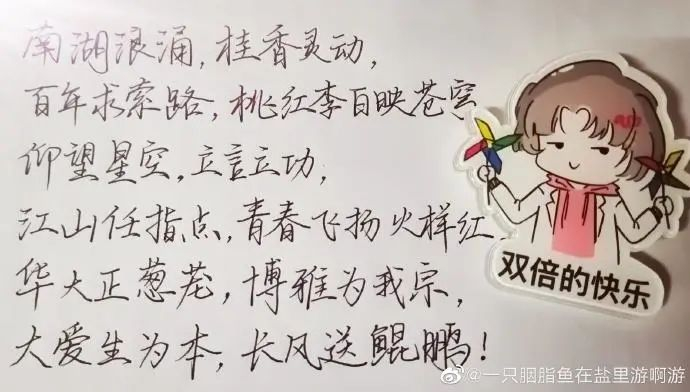 南湖浪涌，桂香灵动，
百年求索路，桃红李白映苍穹
仰望星空，立言立功，
江山任指点，青春飞扬火样红
华大正葱茏，博雅为我宗，
大爱生为本，长风送鲲鹏！
双倍的快乐
@一只胭脂鱼在盐里游啊游